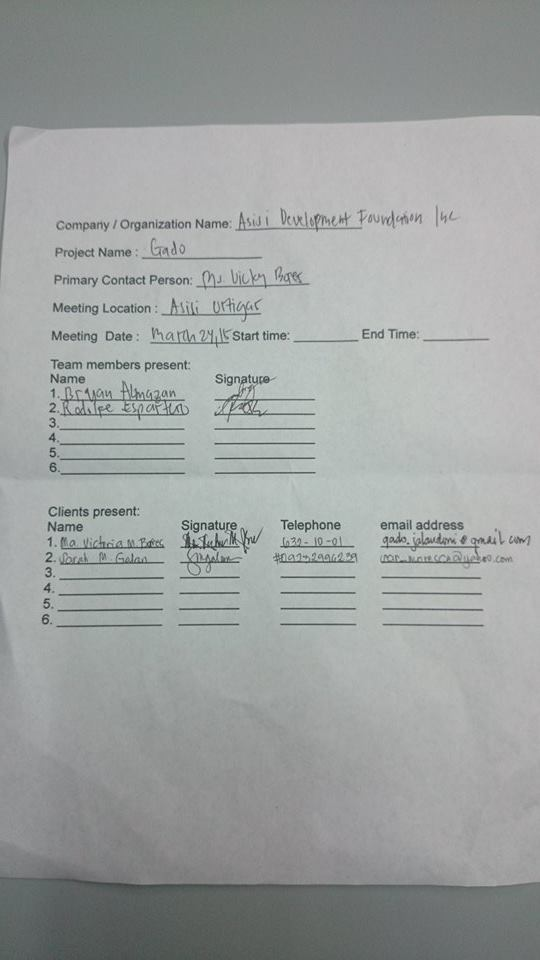 Company / Organization Name: Asisi Development Foundation Inc
Project Name : Gado
Primary Contact Person: Ms. Vicky Bares
Meeting Location : Asisi Ortigas
Meeting Date : March 24, 15 Start time: End Time:
Team members present:
Name Signature
1. Bryan Almazan
2. Rodolfo Espartero
3.
4.
5.
6.
Clients present:
Name Signature Telephone email address
1. Ma. Victoria M. Bares 632-10-01 gado.jalandoni@gmail.com
2. Sarah M. Galan @yahoo.com
3.
4.
5.
6.